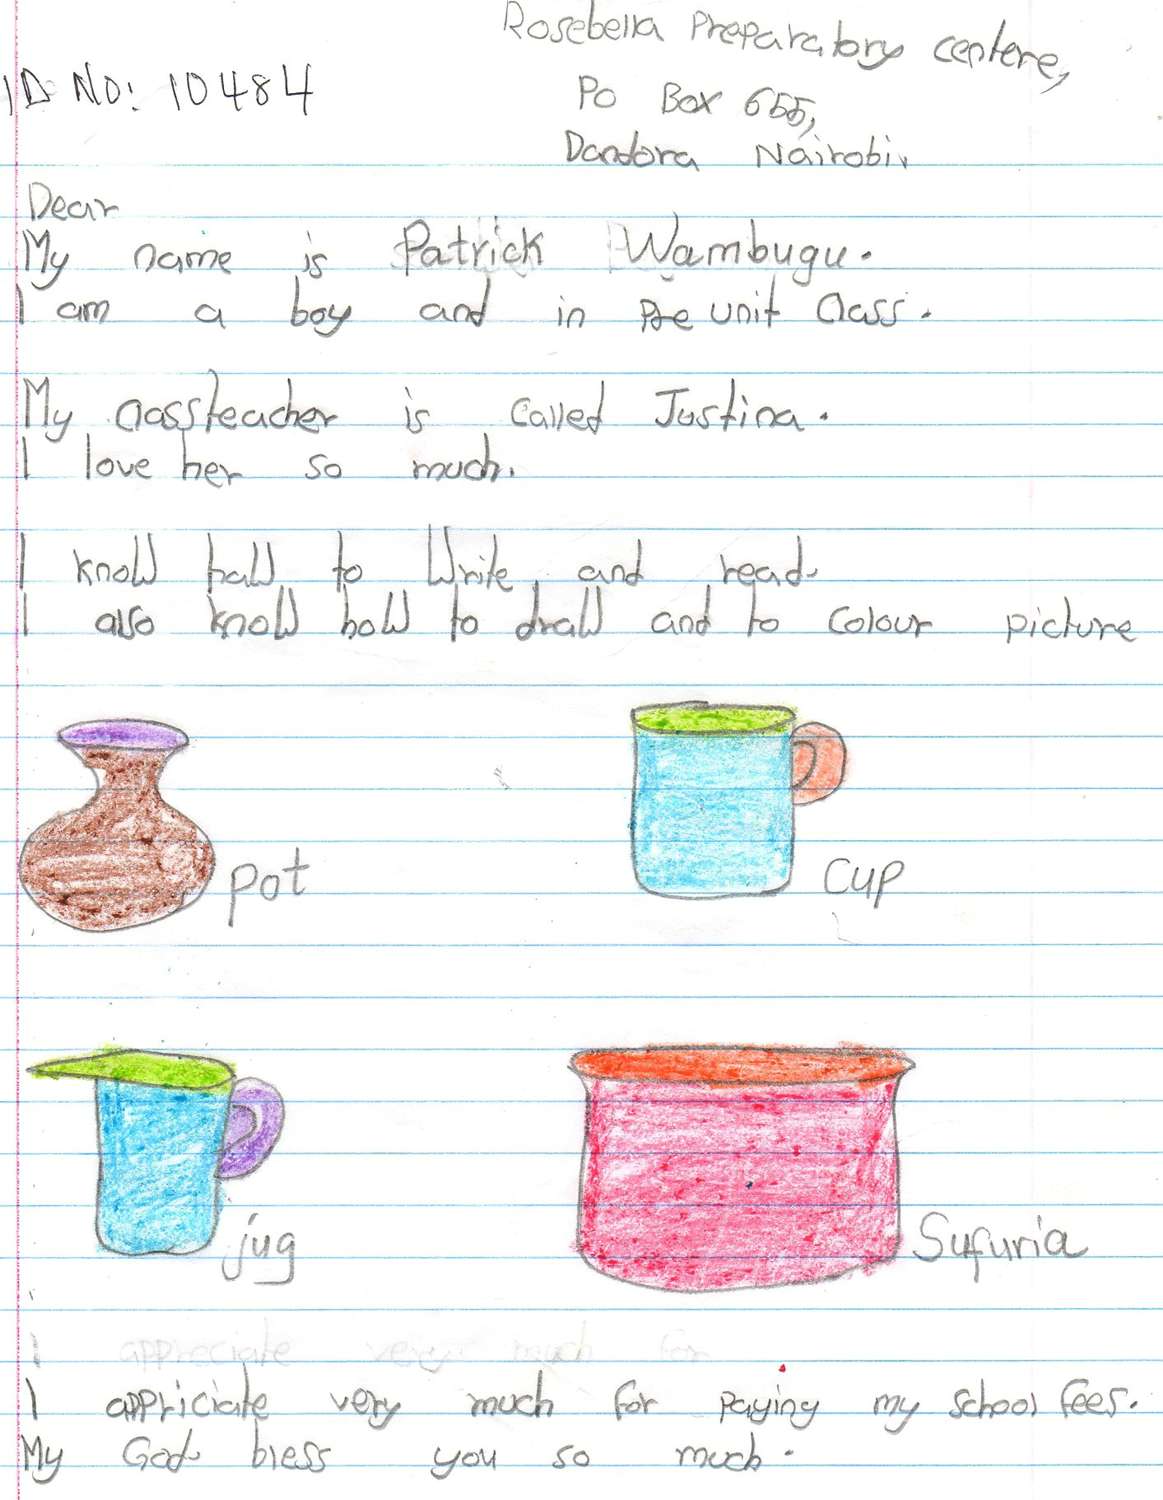 Rosebella Preparatory centere,
ID NO: 10484
PO Box 655,
Dandora Nairobi.
Dear
My name is Patrick Wambugu.
I am a boy and in Pre unit Class.
My classteacher is called Justina.
I love her so much.
I know haw to Write and read.
I also know how to draw and to colour picture
pot
cup
jug
Sufuria
I appreciate very much for
I appriciate very much for paying my school fees.
My God bless you so much.